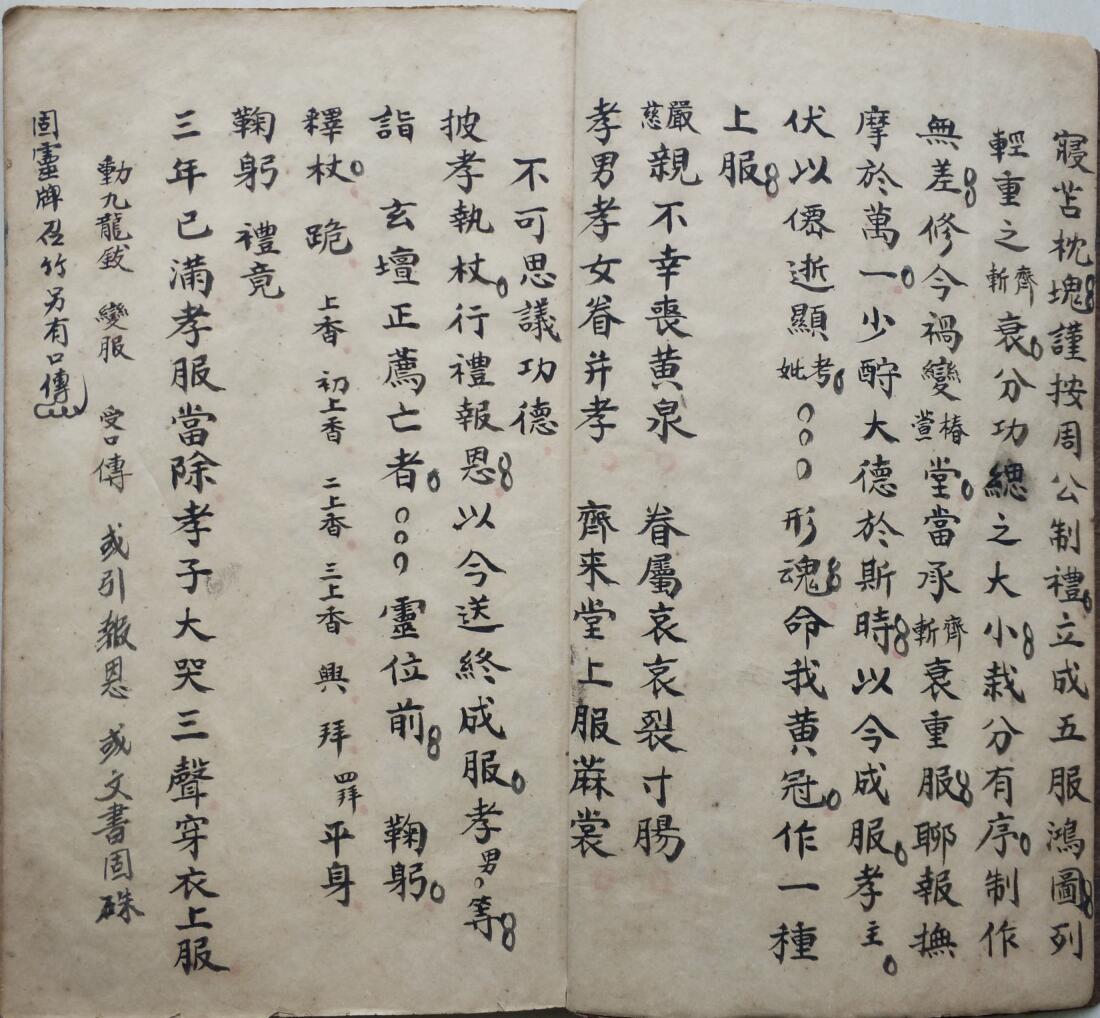 寢苫枕塊謹按周公制禮立成五服鴻圖列
輕重之斬齊衰分功緦之大小裁分有序制作
無差修今禍變萱椿堂當承斬齊衰重服聊報撫
摩於萬一少酧大德於斯時以今成服孝主
伏以僊逝顯妣考○○○形魂命我黃冠作一種
上服
慈嚴親不幸喪黃泉 眷屬哀哀裂寸腸
孝男孝女眷并孝 齊来堂上服蔴裳
不可思議功德
披孝執杖行禮報恩以今送終成服孝男等
詣 玄壇正薦亡者○○○靈位前 鞠躬
釋杖 跪 上香 初上香 二上香 三上香 興 拜 四拜 平身
鞠躬 禮竟
三年已滿孝服當除孝子大哭三聲穿衣上服
動九龍鈸 變服 受口傳 或引報恩 或文書固硃
固靈牌召竹另有口傳